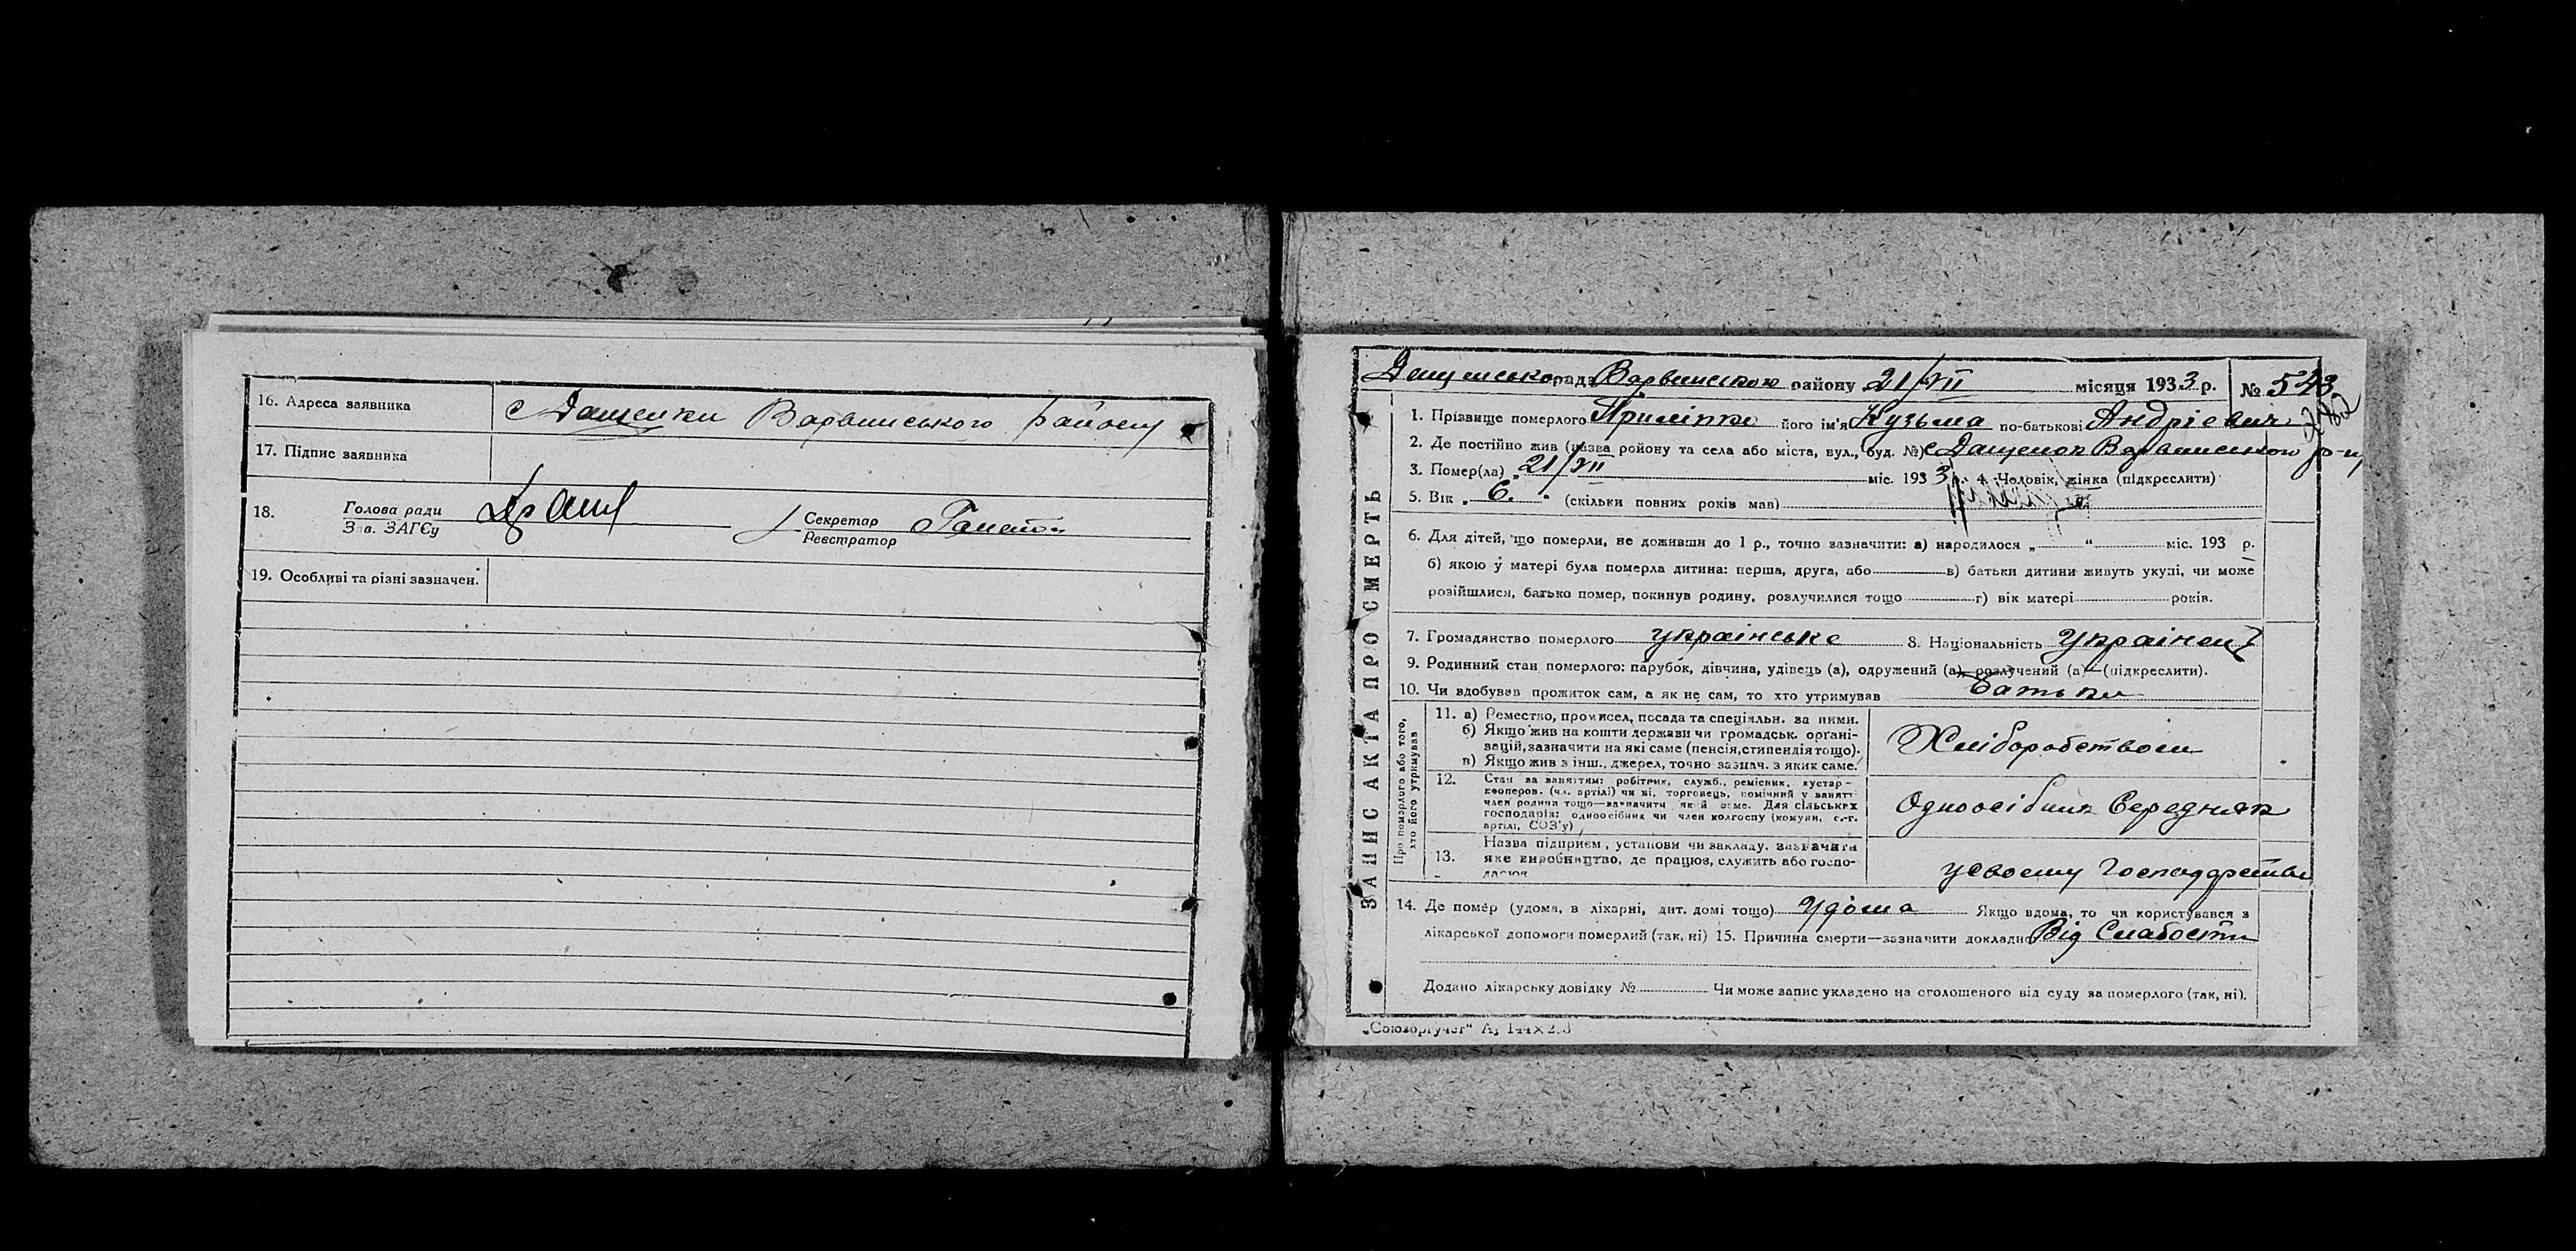 16. Адреса заявника с Дащенки Варвинського району
17. Підпис заявника
18. Голова ради
Зав. ЗАГСу
Секретар
Реєстратор
19. Особливі та різні зазначен.
ЗАПИС АКТА ПРО СМЕРТЬ
рада Варвинского району 21/VII місяця 1933 р. № 543
1. Прізвище померлого його ім'я Кузьма по-батькові Андрієвич
2. Де постійно жив (назва району та села або міста, вул., буд. №) с Дащенок Варвинського р-ну
3. Помер(ла) „ 21/VII міс. 1933 р. 4. Чоловік, жінка (підкреслити)
5. Вік „ 6. “ (скільки повних років мав)
6. Для дітей, що померли, не доживши до 1 р., точно зазначити: а) народилося „ “ міс. 193 р.
б) якою у матері була померла дитина: перша, друга, або в) батьки дитини живуть укупі, чи може
розійшлися, батько помер, покинув родину, розлучилися тощо г) вік матері років.
7. Громадянство померлого українське 8. Національність Українец
9. Родинний стан померлого: парубок, дівчина, удівець (а), одружений (а), розлучений (а)—(підкреслити).
10. Чи здобував прожиток сам, а як не сам, то хто утримував батьки
Про померлого або того,
хто його утримував
11. а) Ремество, промисел, посада та спеціяльн. за ними.
б) Якщо жив на кошти держави чи громадськ. органі-
зацій, зазначити на які саме (пенсія, стипендія тощо).
в) Якщо жив з інш., джерел, точно зазнач. з яких саме.
Хліборобством
12. Стан за заняттям: робітник, служб., ремісник, кустар-
кооперов. (чл. артілі) чи ні, торговець, помічний у занятті
член родини тощо—зазначити який саме. Для сільських
господарів: одноосібник чи член колгоспу (комуни, с.-г.
артілі, СОЗ'у)
Одноосібник Середняк
13. Назва підприєм., установи чи закладу, зазначити
яке виробництво, де працює, служить або госпо-
дарює
у своему господарстві
14. Де помер (удома, в лікарні, дит. домі тощо) Удома Якщо вдома, то чи користувався з
лікарської допомоги померлий (так, ні) 15. Причина смерти—зазначити докладно Від Слабости
Додано лікарську довідку № Чи може запис укладено на оголошеного від суду за померлого (так, ні).
„Союзоргучет“